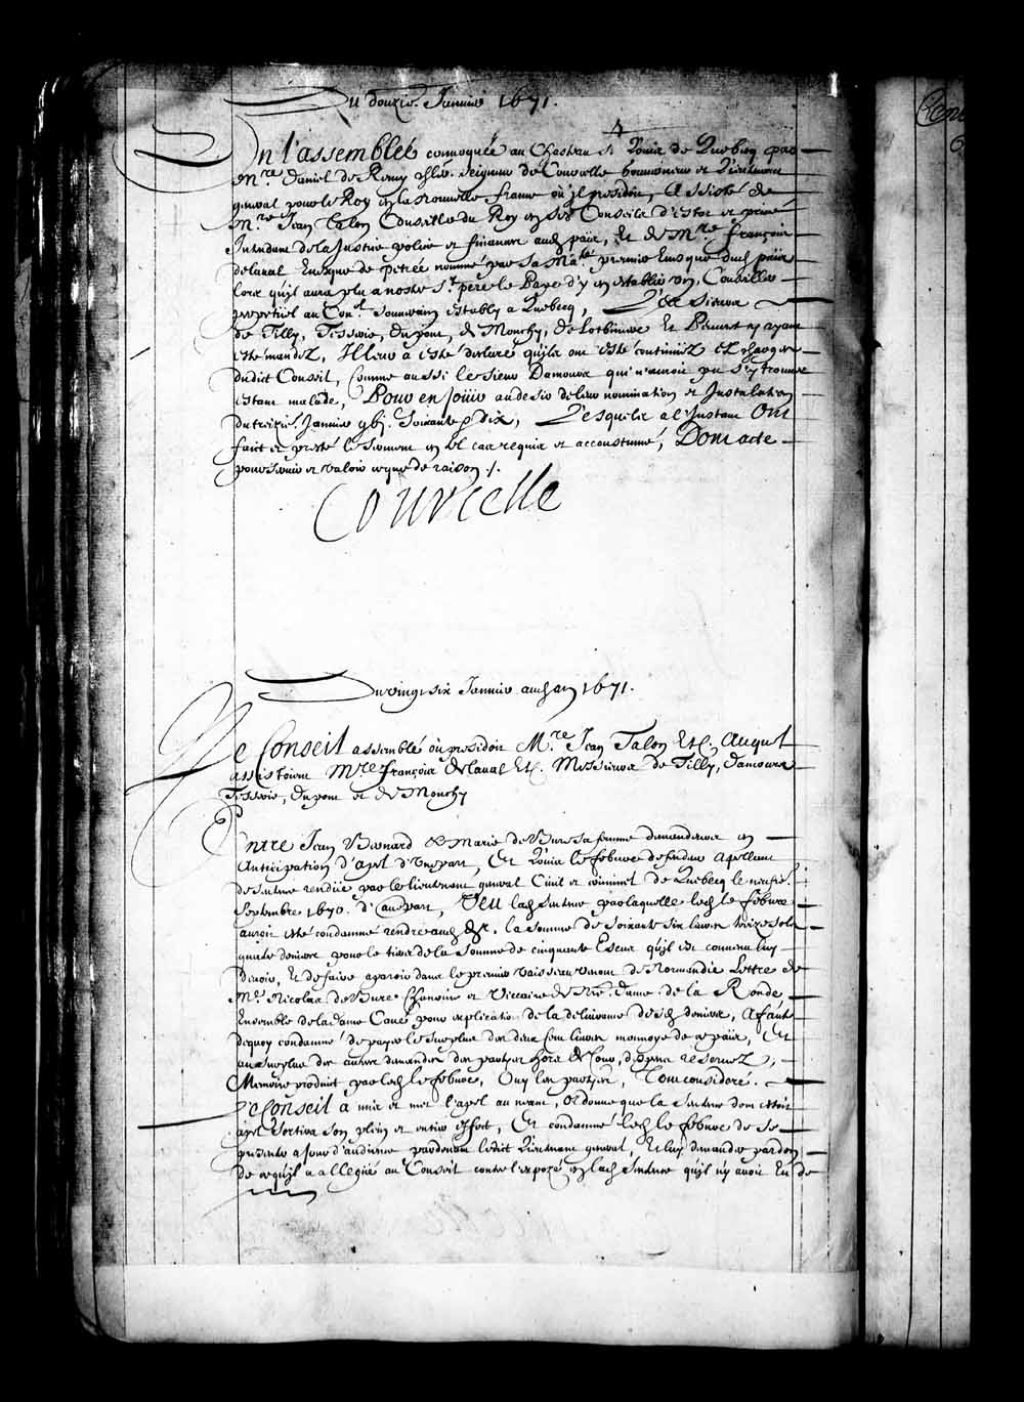 Du douzie. Janvier 1671.
En l'assemblée convoquée au Chasteau St Louis de Quebecq par
Mre. Daniel de Remy chlr. Seigneur de Courcelle Gouverneur et Lieutenant
general pour le Roy en la Nouvelle france où jl presidoit, Assisté de
Mre. Jean Talon Conseiller du Roy en ses Conseils d'Estat et privé
Intendant de la Justice police et finances aud. païs, Et de Mre. françois
delaval Evesque de petrée nommé par sa Mate. premier Evesque dud. païs
lors qu'jl aura plu a nostre St. pere le Pape d'y en establir un, Conseiller
perpetuel au Conel. Souverain estably a Quebecq, Les Sieurs
de Tilly, Tesserie, dupont, de Mouchy, de Lotbiniere Et Peuvret y ayant
esté mandez, Il leur a esté declaré qu'jls ont esté continüéz Es charges
dudict Conseil, Comme aussi le Sieur Damours qui n'auroit pu s'y trouver
estant malade, Pour en Joüir au desir de leur nomination et Instalation
du treizie. Janvier gbj. Soixante & dix, Lesquels a l'Instant Ont
fait et presté le Serment en tel cas requis et accoustumé, Dont acte
pour servir et valoir ce que de raison ./.
Courcelle
Du vingt six Janvier aud. an 1671.
Le Conseil assemblé où presidoit Mre. Jean Talon Etc. Auquel
assistoient Mre françois de laval Etc. Messieurs de Tilly, damours
Tesserie, dupont et de Mouchy
Entre Jean Besnard & Marie de Bure sa femme demandeurs en
Anticipation d'apel d'une part, Et Louis lefebvre defendeur apellant
de Sentence rendüe par le lieutenant general Civil et criminel de Quebecq le neufie.
Septembre 1670. d'Autre part, Veu lad. Sentence par laquelle led. le febvre
auroit esté condamné rendre aud. la somme de Soixante Six livres treize sols
quatre deniers pour le tiers de la Somme de cinquante Escus qu'jl est convenu luy
devoir, Et de faire aparoir dans le premier vaisseau venant de Normandie Lettre de
Mre. Nicolas de Bure Chanoine et Viccaire de Nre. dame de la Ronde
Ensemble de la dame Caué pour explication de la delivrance desd. deniers, A faute
dequoy condamné de payer le surplus des deux cens livres monnoye de ce païs, Et
au surplus des autres demandes des parties hors de Cour, despens reservez,
Memoire produit par led. le febvre, Ouy les parties, Tout consideré.
Le Conseil a mis et met l'apel au neant, Ordonne que la Sentence dont estoit
apel Sortira son plein et entier effect, Et condamné led. le febvre de se
presenter a jour d'audience pardevant ledit Lieutenant general, Et luy demander pardon
de ce qu'jl a allegué au Conseil contre l'exposé en lad. Sentence qu'jl n'y avoit Eu de